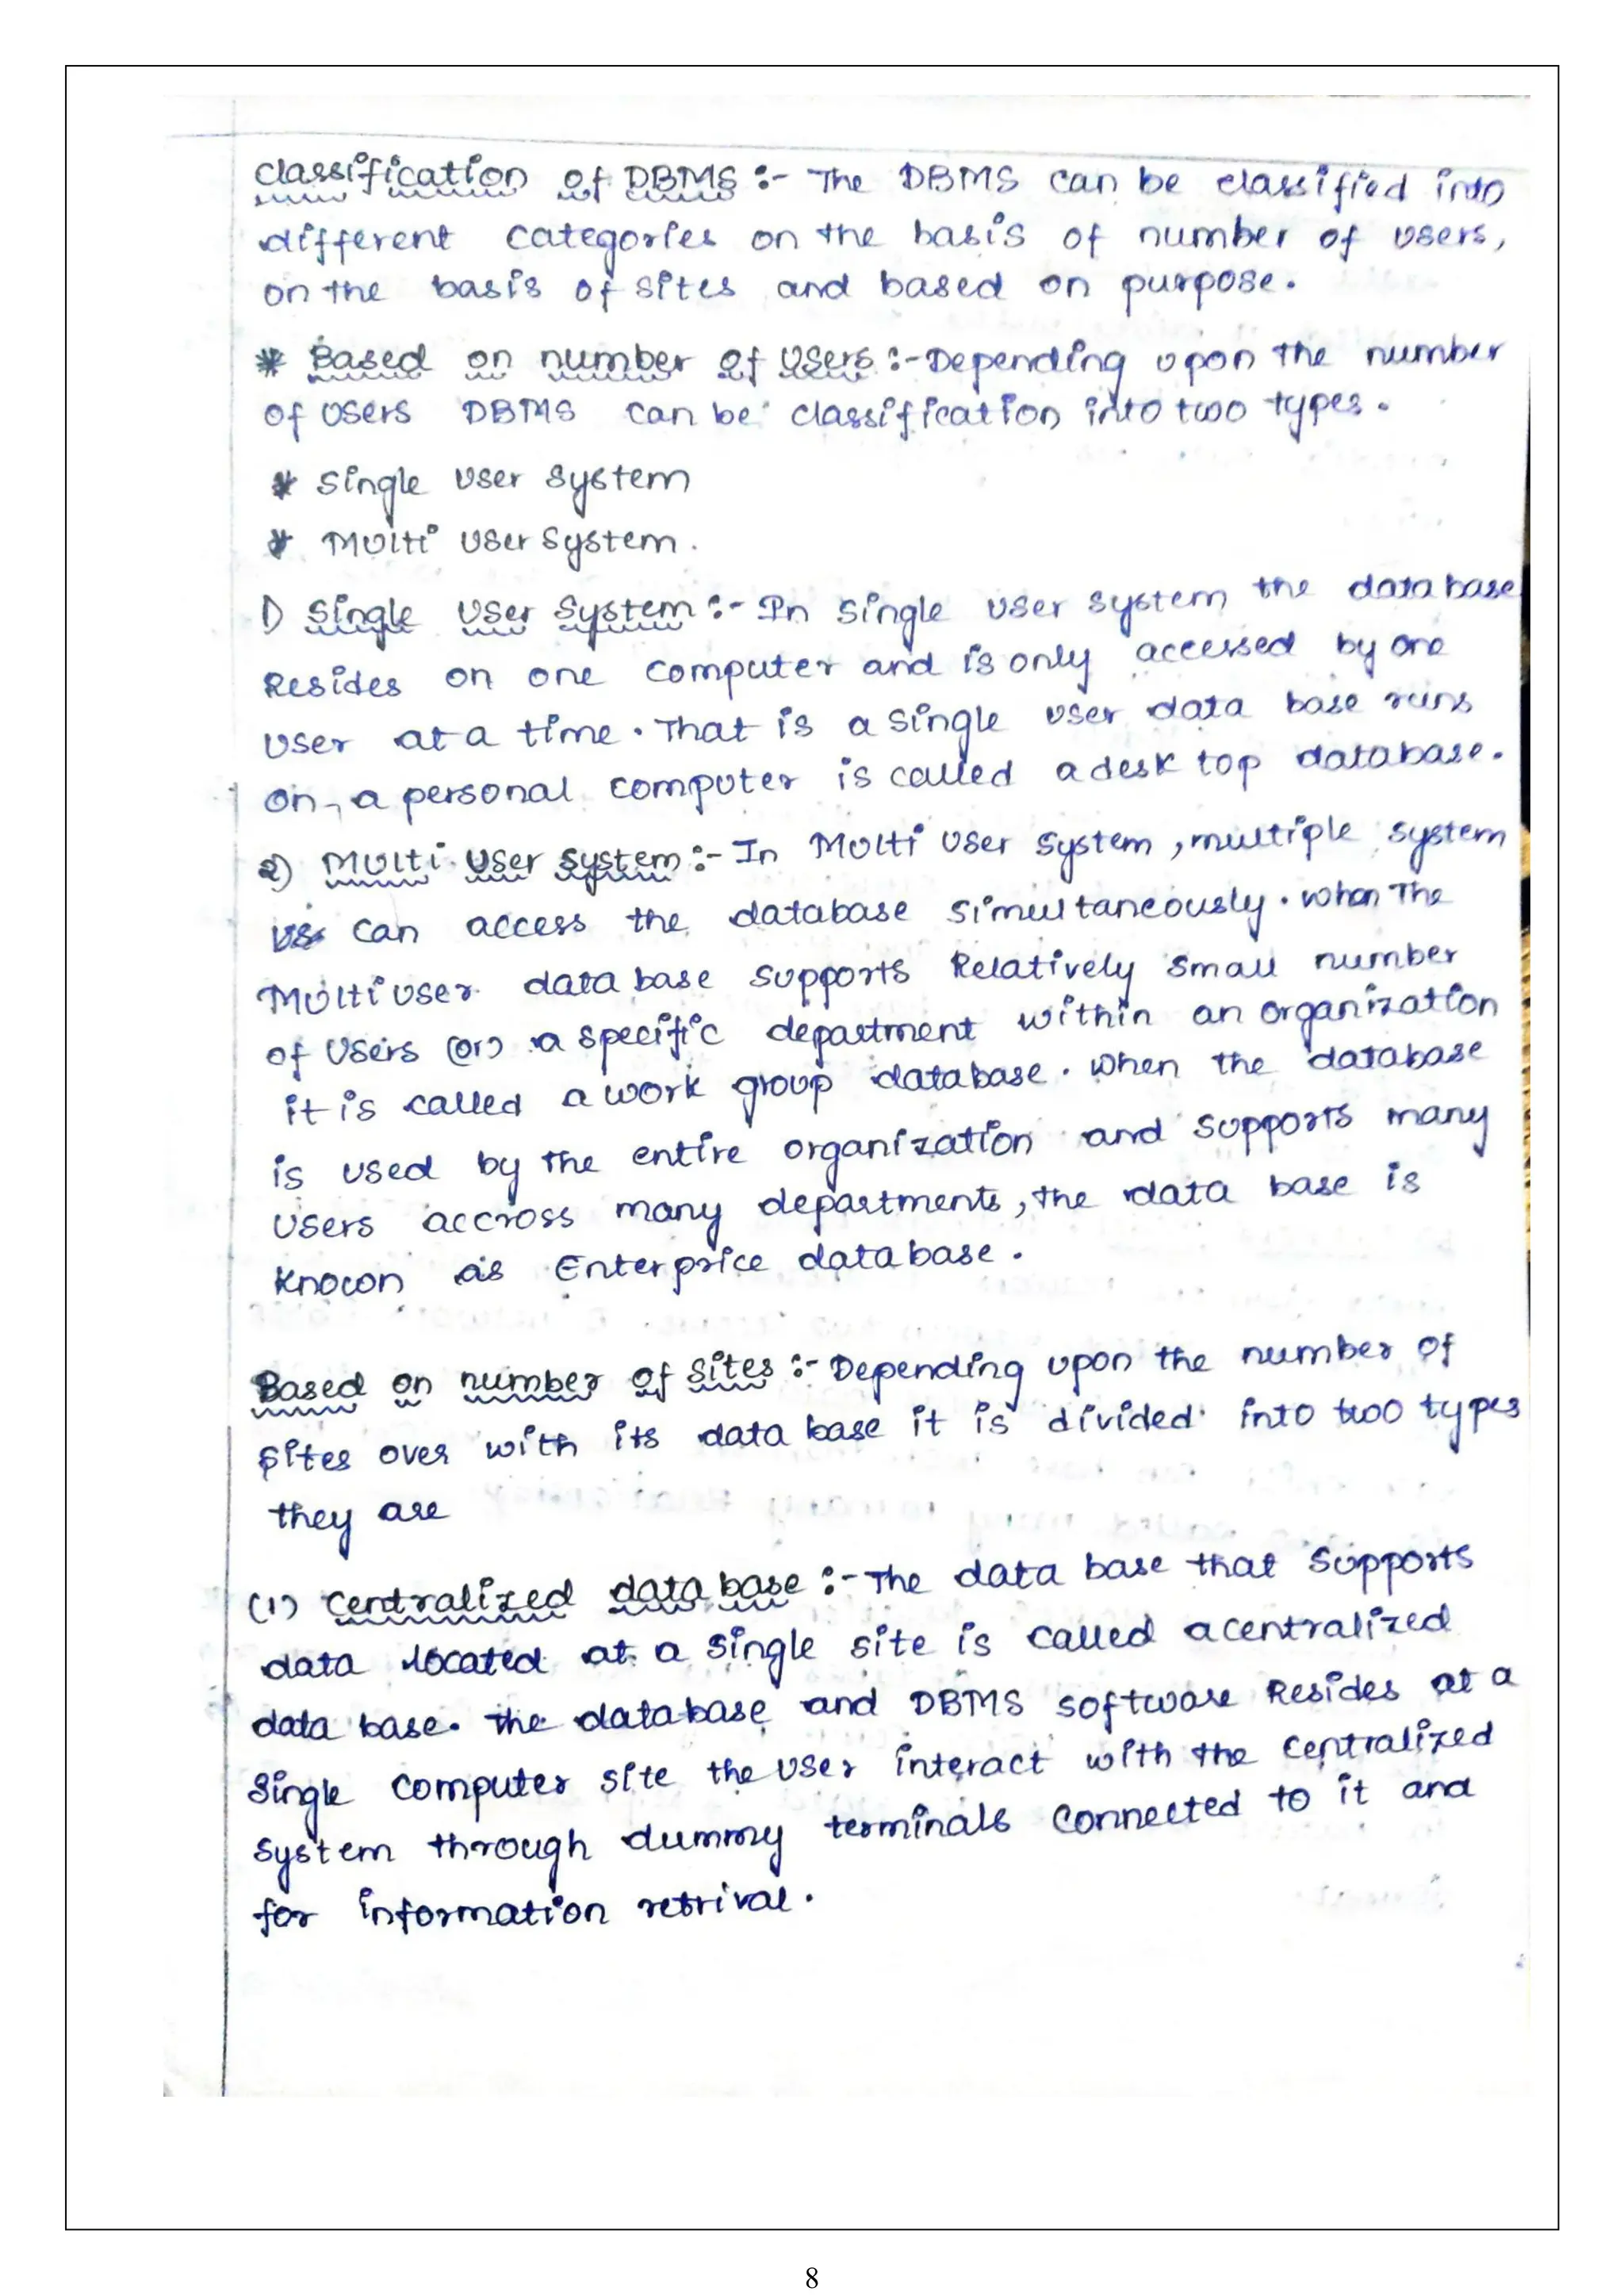 Classification of DBMS :- The DBMS can be classified into
different categories on the basis of number of users,
on the basis of sites and based on purpose.
* Based on number of users :- Depending upon the number
of users DBMS can be classification into two types.
* Single user system
* Multi user system.
1) Single User System :- In single user system the database
Resides on one computer and is only accessed by one
user at a time. That is a single user data base runs
on a personal computer is called a desk top database.
2) Multi User System :- In Multi user system, multiple system
can access the database simultaneously. when The
Multi user data base supports Relatively small number
of users (or) a specific department within an organization
it is called a work group database. when the database
is used by the entire organization and supports many
users accross many departments, the data base is
known as Enterprice database.
Based on number of Sites :- Depending upon the number of
sites over with its data base it is divided into two types
they are
(1) Centralized data base :- The data base that supports
data located at a single site is called a centralized
data base. the database and DBMS software Resides at a
single computer site the user interact with the centralized
system through dummy terminals connected to it and
for information retrival.
8